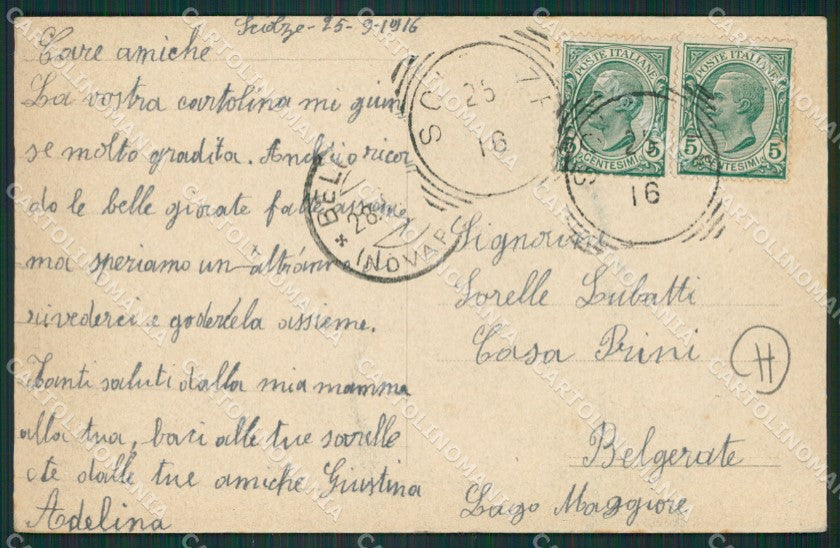 Scolze - 25-9-1916
Care amiche
La vostra cartolina mi giun
se molto gradita. Anch'io ricor
do le belle giorate fatte assieme,
ma speriamo un altr'anno
rivederci e godercela assieme.
Tanti saluti dalla mia mamma
alla tua, baci alle tue sorelle
e te dalle tue amiche Giustina
Adelina
POSTE ITALIANE
5 CENTESIMI 5
POSTE ITALIANE
5 CENTESIMI 5
25
16
16
BEL
28
(NOVAR
Signorine
Sorelle Lubatti
Casa Prini
H
Belgerate
Lago Maggiore
CARTOLINOMANIA